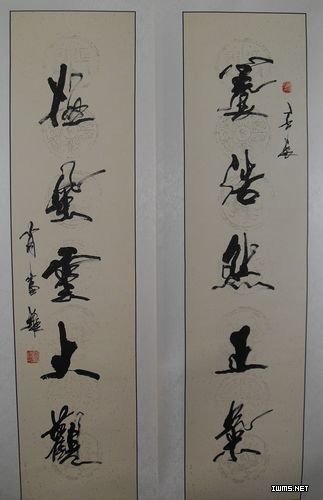 養浩然正氣
極風雲大觀
IWMS.NET